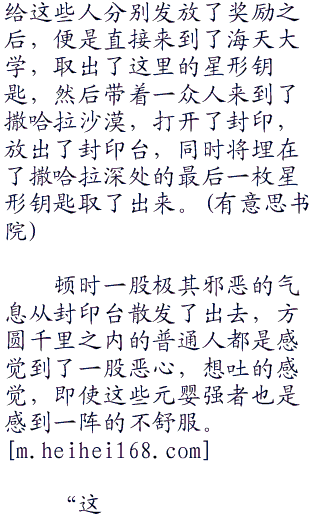 给这些人分别发放了奖励之
后，便是直接来到了海天大
学，取出了这里的星形钥
匙，然后带着一众人来到了
撒哈拉沙漠，打开了封印，
放出了封印台，同时将埋在
了撒哈拉深处的最后一枚星
形钥匙取了出来。(有意思书
院)
顿时一股极其邪恶的气
息从封印台散发了出去，方
圆千里之内的普通人都是感
觉到了一股恶心，想吐的感
觉，即使这些元婴强者也是
感到一阵的不舒服。
[m.heihei168.com]
“这